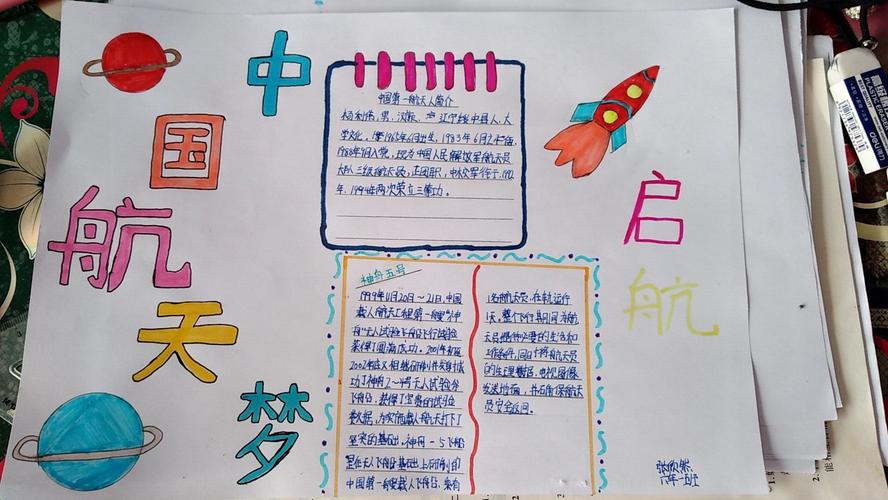 中
国
航
天
梦
启
航
中国第一航天人简介
杨利伟，男，汉族，辽宁绥中县人，大
学文化。1965年6月出生，1983年6月入伍，
1988年9月入党，现为中国人民解放军航天员
大队三级航天员，正团职，中校军衔于1992
年、1994年两次荣立三等功。
神舟五号
1999年11月20日～21日，中国
载人航天工程第一艘“神
舟”无人试验飞船飞行试验
获得了圆满成功。2001年初至
2002年底又相继研制并发射成
功了神舟2～4号无人试验
飞船，获得了宝贵的试验
数据，为实施载人航天打下了
坚实的基础。神舟-5飞船
是在无人飞船基础上研制的
中国第一艘载人飞船，乘有
1名航天员，在轨运行
1天。整个飞行期间为航天
员提供必要的生活和
工作条件，同时将航天员
的生理数据、电视图像
发送地面，并确保航天
员安全返回。
张欣然
六年一班
PLASTIC ERASER
deli